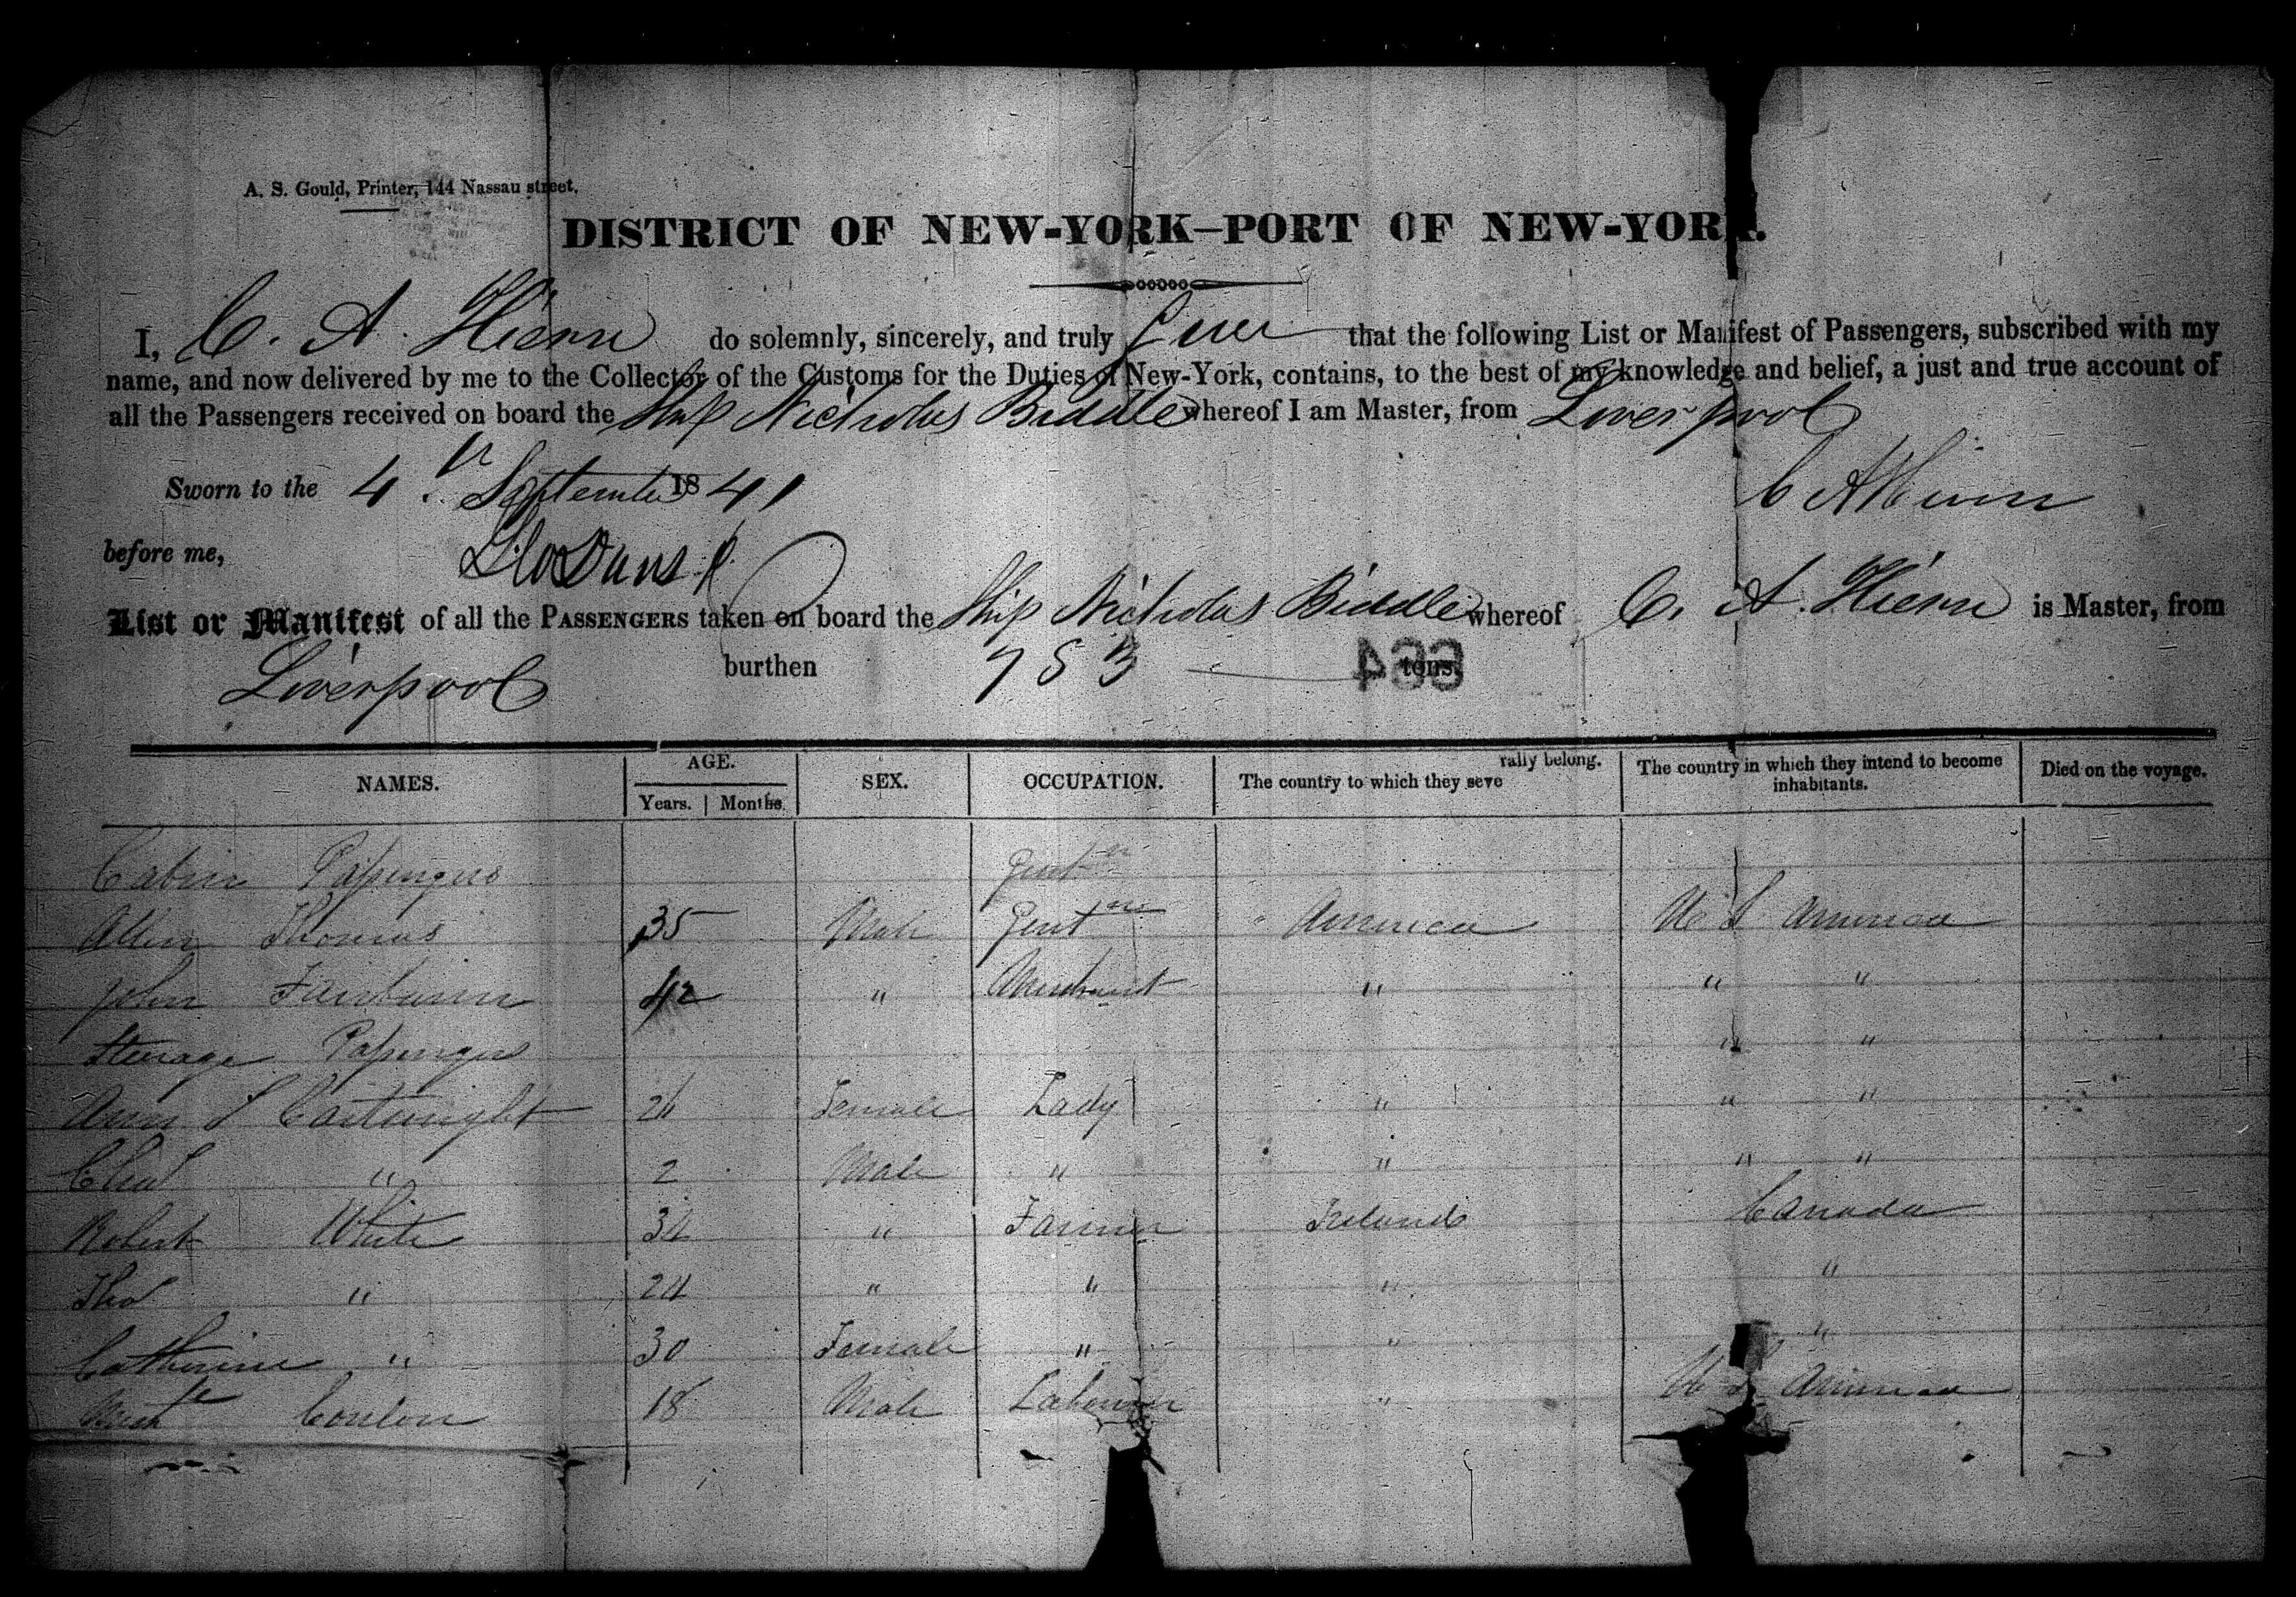 A. S. Gould, Printer, 144 Nassau street.
DISTRICT OF NEW-YORK—PORT OF NEW-YORK.
I, C. A. Hiern do solemnly, sincerely, and truly that the following List or Manifest of Passengers, subscribed with my
name, and now delivered by me to the Collector of the Customs for the Duties of New-York, contains, to the best of my knowledge and belief, a just and true account of
all the Passengers received on board the Ship Nicholas Biddle whereof I am Master, from Liverpool
Sworn to the 4th September 1841 C A Hiern
before me,
List or Manifest of all the PASSENGERS taken on board the Ship Nicholas Biddle whereof C. A. Hiern is Master, from
Liverpool burthen 783 tons. 664
NAMES. AGE. SEX. OCCUPATION. The country to which they seve rally belong. The country in which they intend to become inhabitants. Died on the voyage.
Years. Months.
Cabin Passengers Gentn
Allen Thomas 35 Male Gentn America U S America
John 42 " Merchant " " "
Steerage Passengers " "
Ann S Cartwright 26 Female Lady " " "
Chas " 2 Male " " " "
Robert White 34 " Farmer Ireland Canada
Thos " 24 " " " "
Catherine " 30 Female " " "
Conlon 18 Male Labourer " U S America